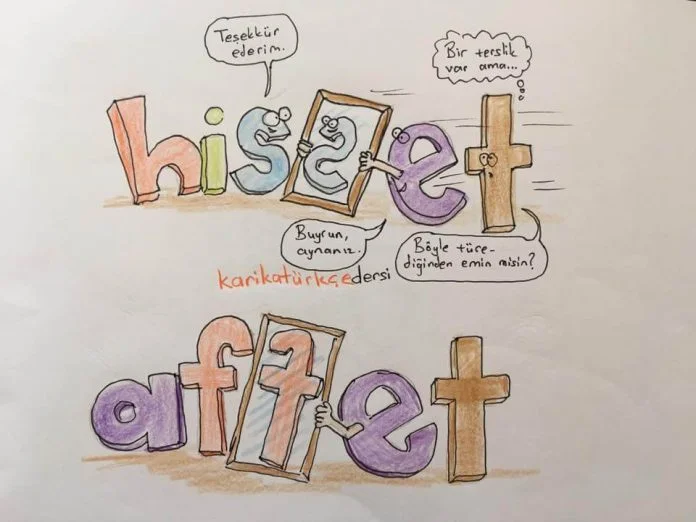 Teşekkür
ederim.
Bir terslik
var ama...
hisset
Buyrun,
aynanız.
Böyle türe-
diğinden emin misin?
karikatürkçedersi
affet